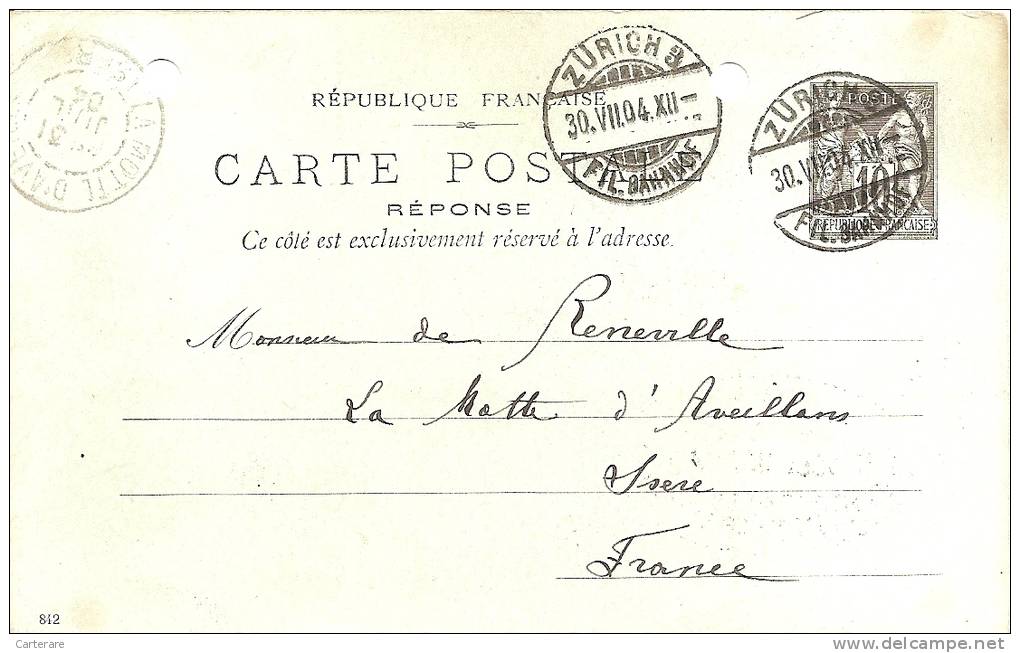 ZÜRICH 3
30.VII.04.XII
FIL.BAHNHOF
ZÜRICH 3
30.VII.04.XII
FIL.BAHNHOF
LA MOTTE D'AVE
31
JUIL
04
POSTE
10
REPUBLIQUE FRANCAISE
RÉPUBLIQUE FRANÇAISE
CARTE POSTALE
RÉPONSE
Ce côté est exclusivement réservé à l'adresse.
Monsieur de Reneville
La Motte d'Aveillans
Isère
France
842
Carterare
www.delcampe.net